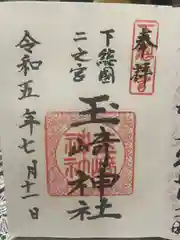 奉拝
下総國
二之宮
玉崎神社
令和五年七月十一日